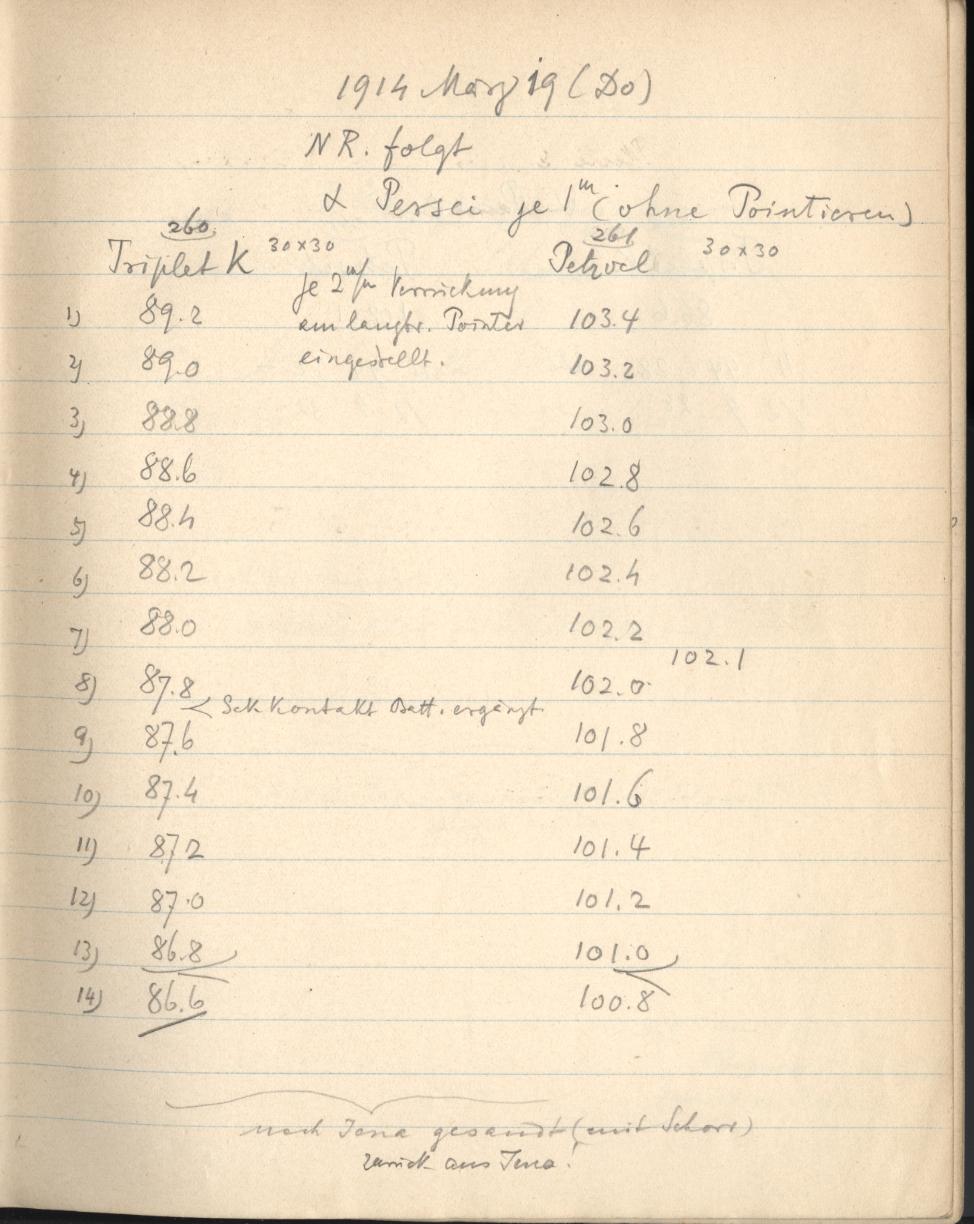 1914 März 19 (Do)
NR. folgt
α Persei je 1m (ohne Pointieren)
260 261
Triplet K 30x30 Petzval 30x30
je 2 m/m Verrückung
am langbr. Pointer
eingestellt.
1) 89.2 103.4
2) 89.0 103.2
3) 88.8 103.0
4) 88.6 102.8
5) 88.4 102.6
6) 88.2 102.4
7) 88.0 102.2
102.1
8) 87.8 102.0
< Sek Kontakt Batt. ergänzt.
9) 87.6 101.8
10) 87.4 101.6
11) 87.2 101.4
12) 87.0 101.2
13) 86.8 101.0
14) 86.6 100.8
nach Jena gesandt (mit Schorr)
zurück aus Jena!